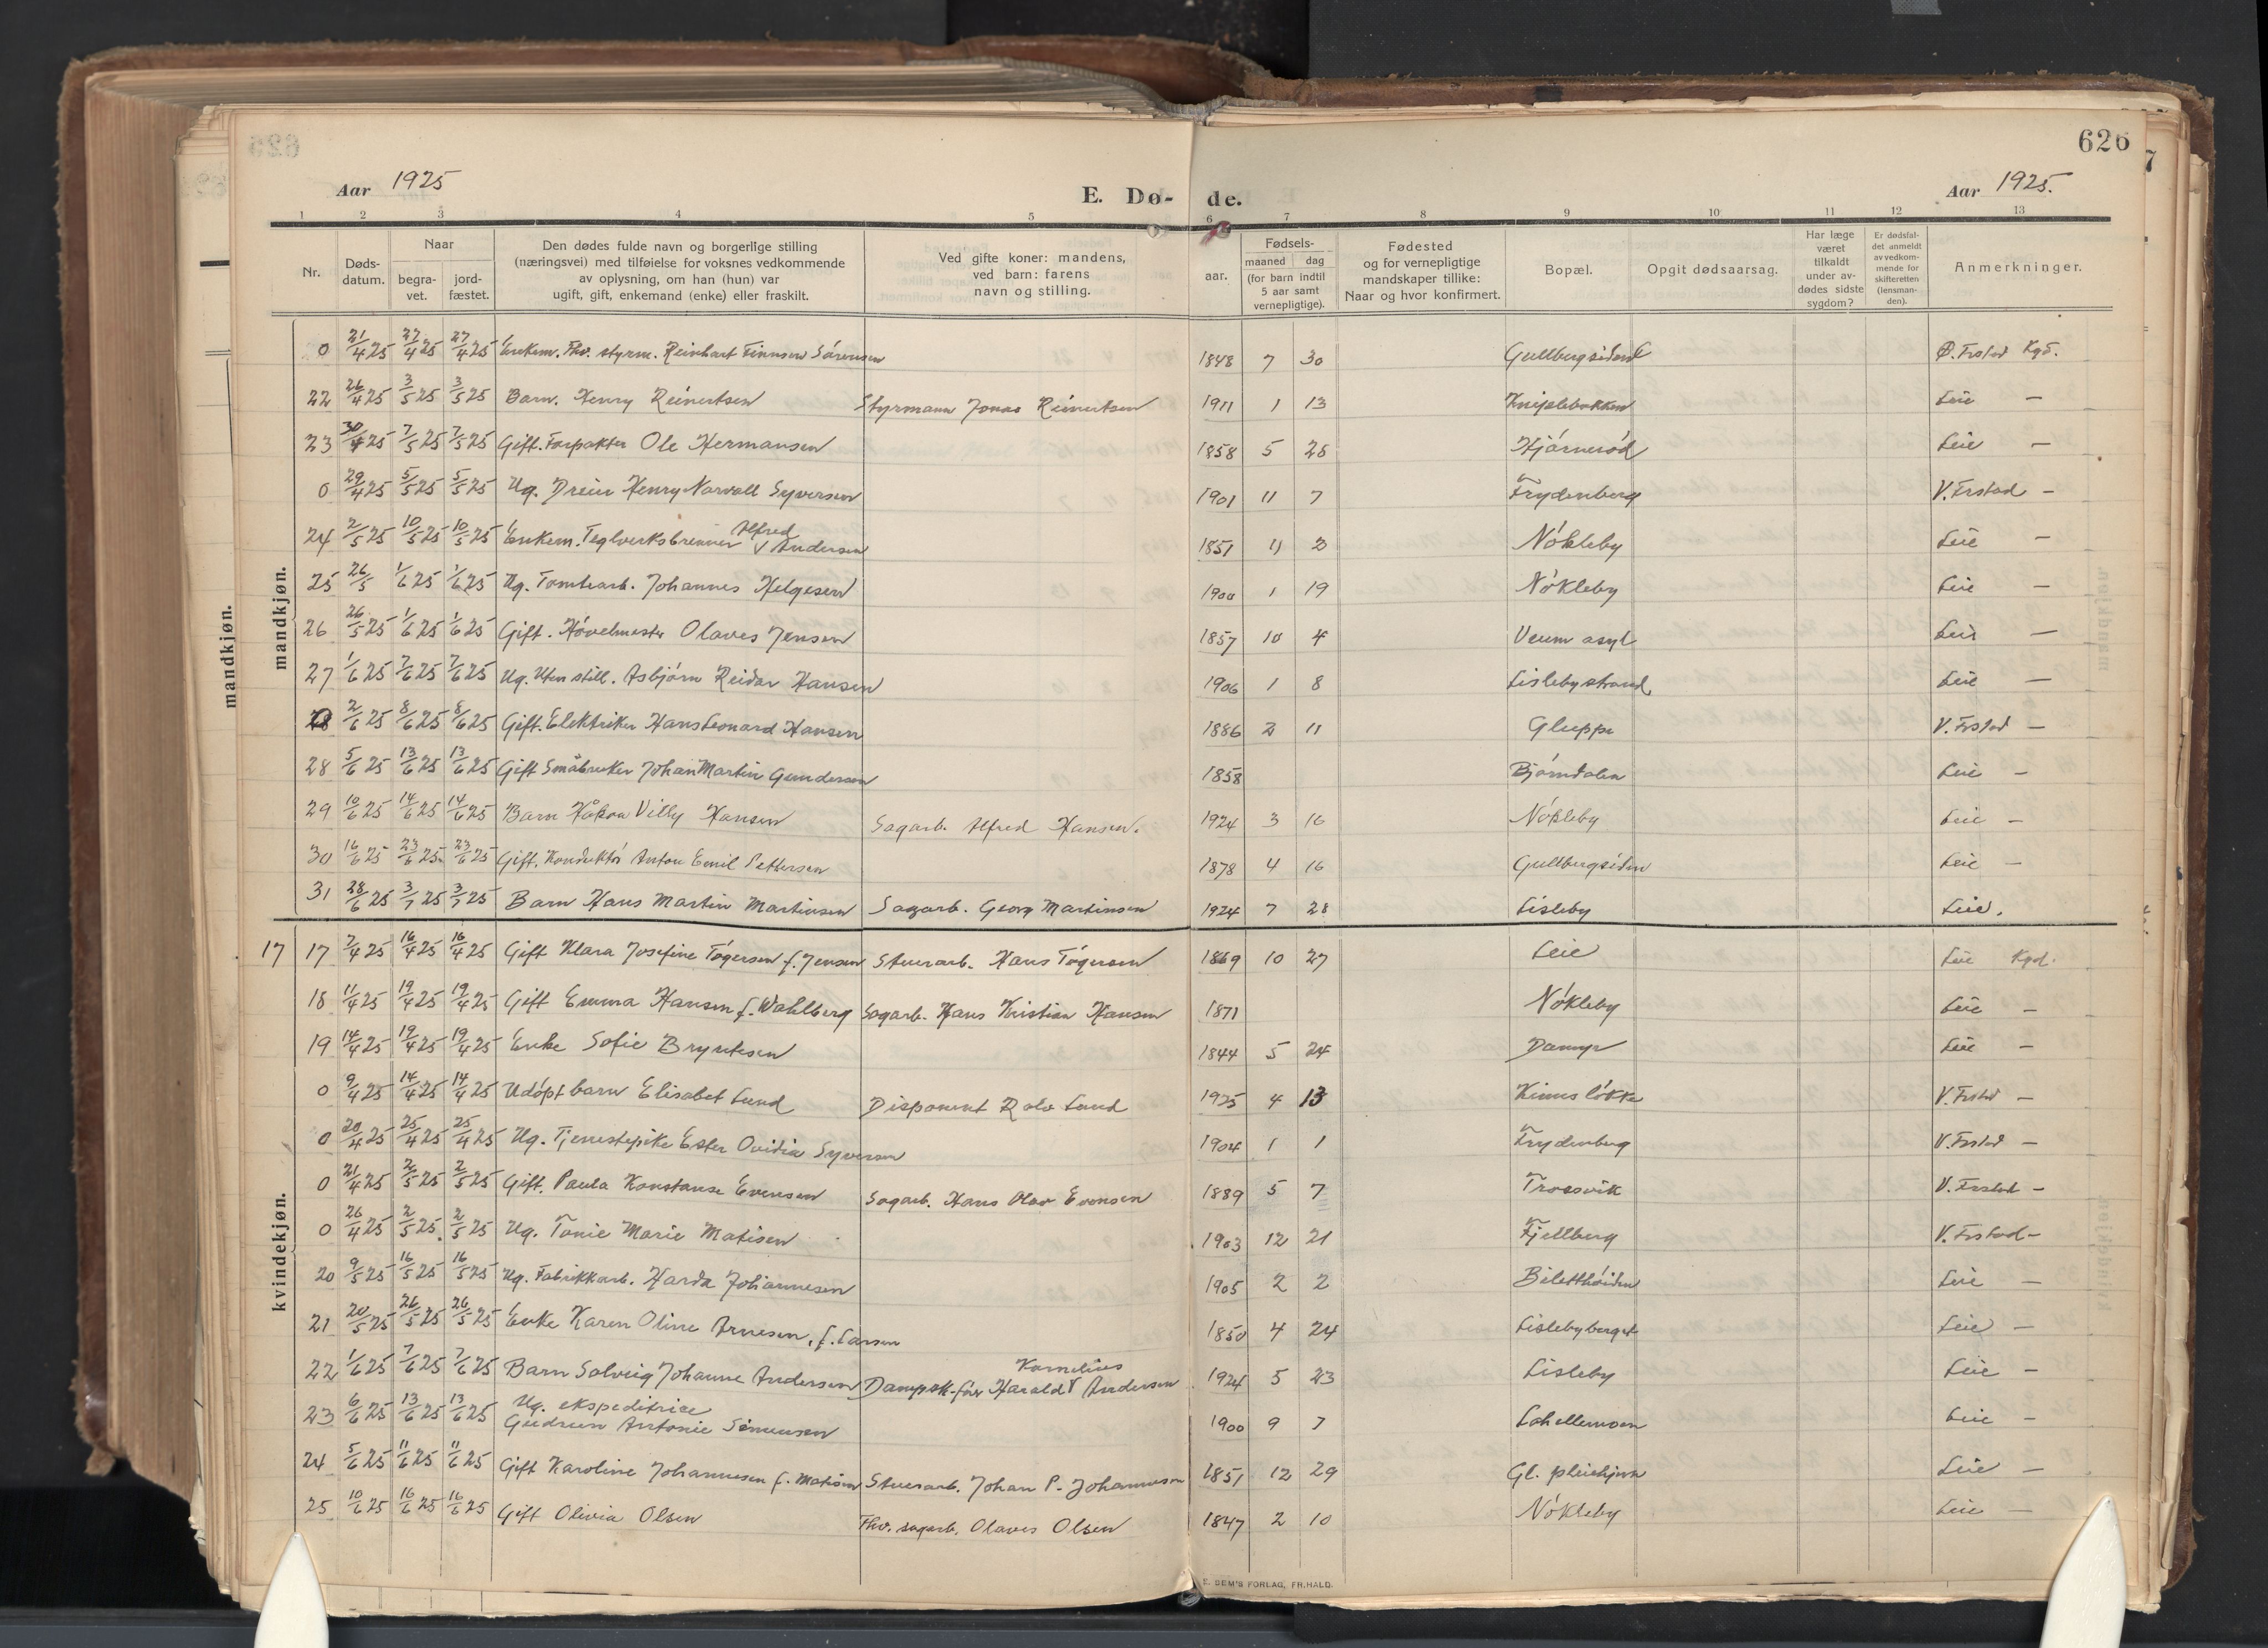 626
Aar 1925
E. Dø-
de.
Aar 1925.
1 2 3 4 5 6 7 8 9 10 11 12 13
Nr.
Døds-
datum.
Naar
begra-
vet.
jord-
fæstet.
Den dødes fulde navn og borgerlige stilling
(næringsvei) med tilføielse for voksnes vedkommende
av oplysning, om han (hun) var
ugift, gift, enkemand (enke) eller fraskilt.
Ved gifte koner: mandens,
ved barn: farens
navn og stilling.
aar.
Fødsels-
maaned dag
(for barn indtil
5 aar samt
vernepligtige).
Fødested
og for vernepligtige
mandskaper tillike:
Naar og hvor konfirmert.
Bopæl.
Opgit dødsaarsag.
Har læge
været
tilkaldt
under av-
dødes sidste
sygdom?
Er dødsfal-
det anmeldt
av vedkom-
mende for
skifteretten
(lensman-
den).
Anmerkninger.
mandkjøn.
mandkjøn.
0 21/4 25 27/4 25 27/4 25 Enkem. Fhv. styrm. Reinhart Finnsen Sörensen 1848 7 30 Gullbergsiden Ø. Frstad Kgd.
22 26/4 25 3/5 25 3/5 25 Barn. Henry Reinertsen Styrmann Jonas Reinertsen 1911 1 13 Kniplebakken Leie —
23 30/4 25 7/5 25 7/5 25 Gift. Forpakter Ole Hermansen 1858 5 28 Hjörneröd Leie —
0 29/4 25 5/5 25 5/5 25 Ug. Dreier Henry Norvall Syversen 1901 11 7 Frydenberg V. Frstad —
24 2/5 25 10/5 25 10/5 25 Enkem. Teglverksbrenner Alfred Andersen 1851 11 3 Nökleby Leie —
25 26/5 1/6 25 1/6 25 Ug. Tomtearb. Johannes Helgesen 1900 1 19 Nökleby Leie —
26 26/5 25 1/6 25 1/6 25 Gift. Hövelmester Olaves Jensen 1857 10 4 Veum asyl Leie —
27 1/6 25 7/6 25 7/6 25 Ug. Uten still. Asbjörn Reidar Hansen 1906 1 8 Lislebystrand Leie —
0 2/6 25 8/6 25 8/6 25 Gift. Elektriker Hans Leonard Hansen 1886 2 11 Gluppe V. Frstad —
28 5/6 25 13/6 25 13/6 25 Gift Småbruker Johan Martin Gundersen 1858 Björndalen Leie —
29 10/6 25 14/6 25 14/6 25 Barn Håkon Villy Hansen Sagarb. Alfred Hansen. 1924 3 16 Nökleby Leie —
30 16/6 25 23/6 25 23/6 25 Gift. Konduktör Anton Emil Pettersen 1878 4 16 Gullbergsiden Leie —
31 28/6 25 3/7 25 3/7 25 Barn Hans Martin Martinsen Sagarb. Georg Martinsen 1924 7 28 Lisleby Leie.
kvindekjøn.
17 17 7/4 25 16/4 25 16/4 25 Gift Klara Josefine Tögersen f. Jensen Stuerarb. Hans Tögersen 1869 10 27 Leie Leie Kgd.
18 11/4 25 19/4 25 19/4 25 Gift Emma Hansen f. Wahlberg Sagarb. Hans Kristian Hansen 1871 Nökleby Leie —
19 14/4 25 19/4 25 19/4 25 Enke Sofie Bryntesen 1844 5 24 Dammyr Leie —
0 9/4 25 14/4 25 14/4 25 Udöpt barn Elisabet Lund Disponent Rolv Lund 1925 4 13 Kinnslökke V. Frstad —
0 20/4 25 25/4 25 25/4 25 Ug. Tjenestepike Ester Ovidia Syversen 1904 1 1 Frydenberg V. Frstad —
0 21/4 25 2/5 25 2/5 25 Gift. Paula Konstanse Evensen Sagarb. Hans Olav Evensen 1889 5 7 Trosvik V. Frstad —
0 26/4 25 2/5 25 2/5 25 Ug. Tonie Marie Matisen 1903 12 21 Fjellberg V. Frstad —
20 9/5 25 16/5 25 16/5 25 Ug. Fabrikkarb. Harda Johannesen 1905 2 2 Biletthöiden Leie —
21 20/5 25 26/5 25 26/5 25 Enke Karen Oline Arnesen, f. Larsen 1850 4 24 Lislebyberget Leie —
22 1/6 25 7/6 25 7/6 25 Barn Solveig Johanne Andersen Dampsk.förer Harald Kornelius Andersen 1924 5 23 Lisleby Leie —
23 6/6 25 13/6 25 13/6 25 Ug. ekspeditrice
Gudrun Antonie Simensen 1900 9 7 Lahellemoen Leie —
24 5/6 25 11/6 25 11/6 25 Gift Karoline Johannesen f. Matisen Stuerarb. Johan P. Johannesen 1851 12 29 Gl. pleiehjem Leie —
25 10/6 25 16/6 25 16/6 25 Gift Olivia Olsen Fhv. sagarb. Olaves Olsen 1847 2 10 Nökleby Leie —
E. SEM'S FORLAG, FR.HALD.